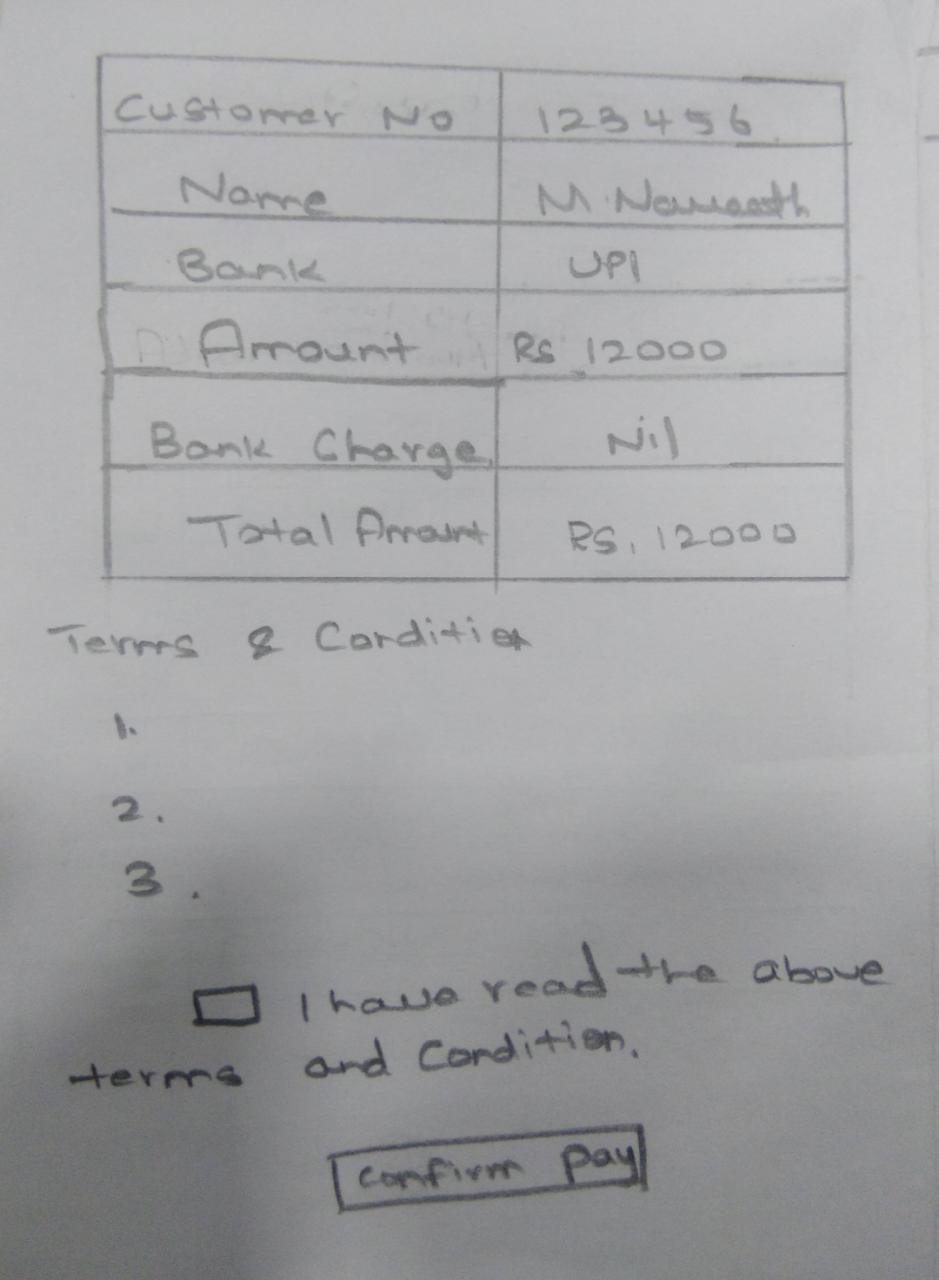 Customer No 123456
Name M.
Bank UPI
Amount Rs 12000
Bank Charge Nil
Total Amount RS. 12000
Terms & Condition
1.
2.
3.
I have read the above
terms and Condition.
Confirm pay